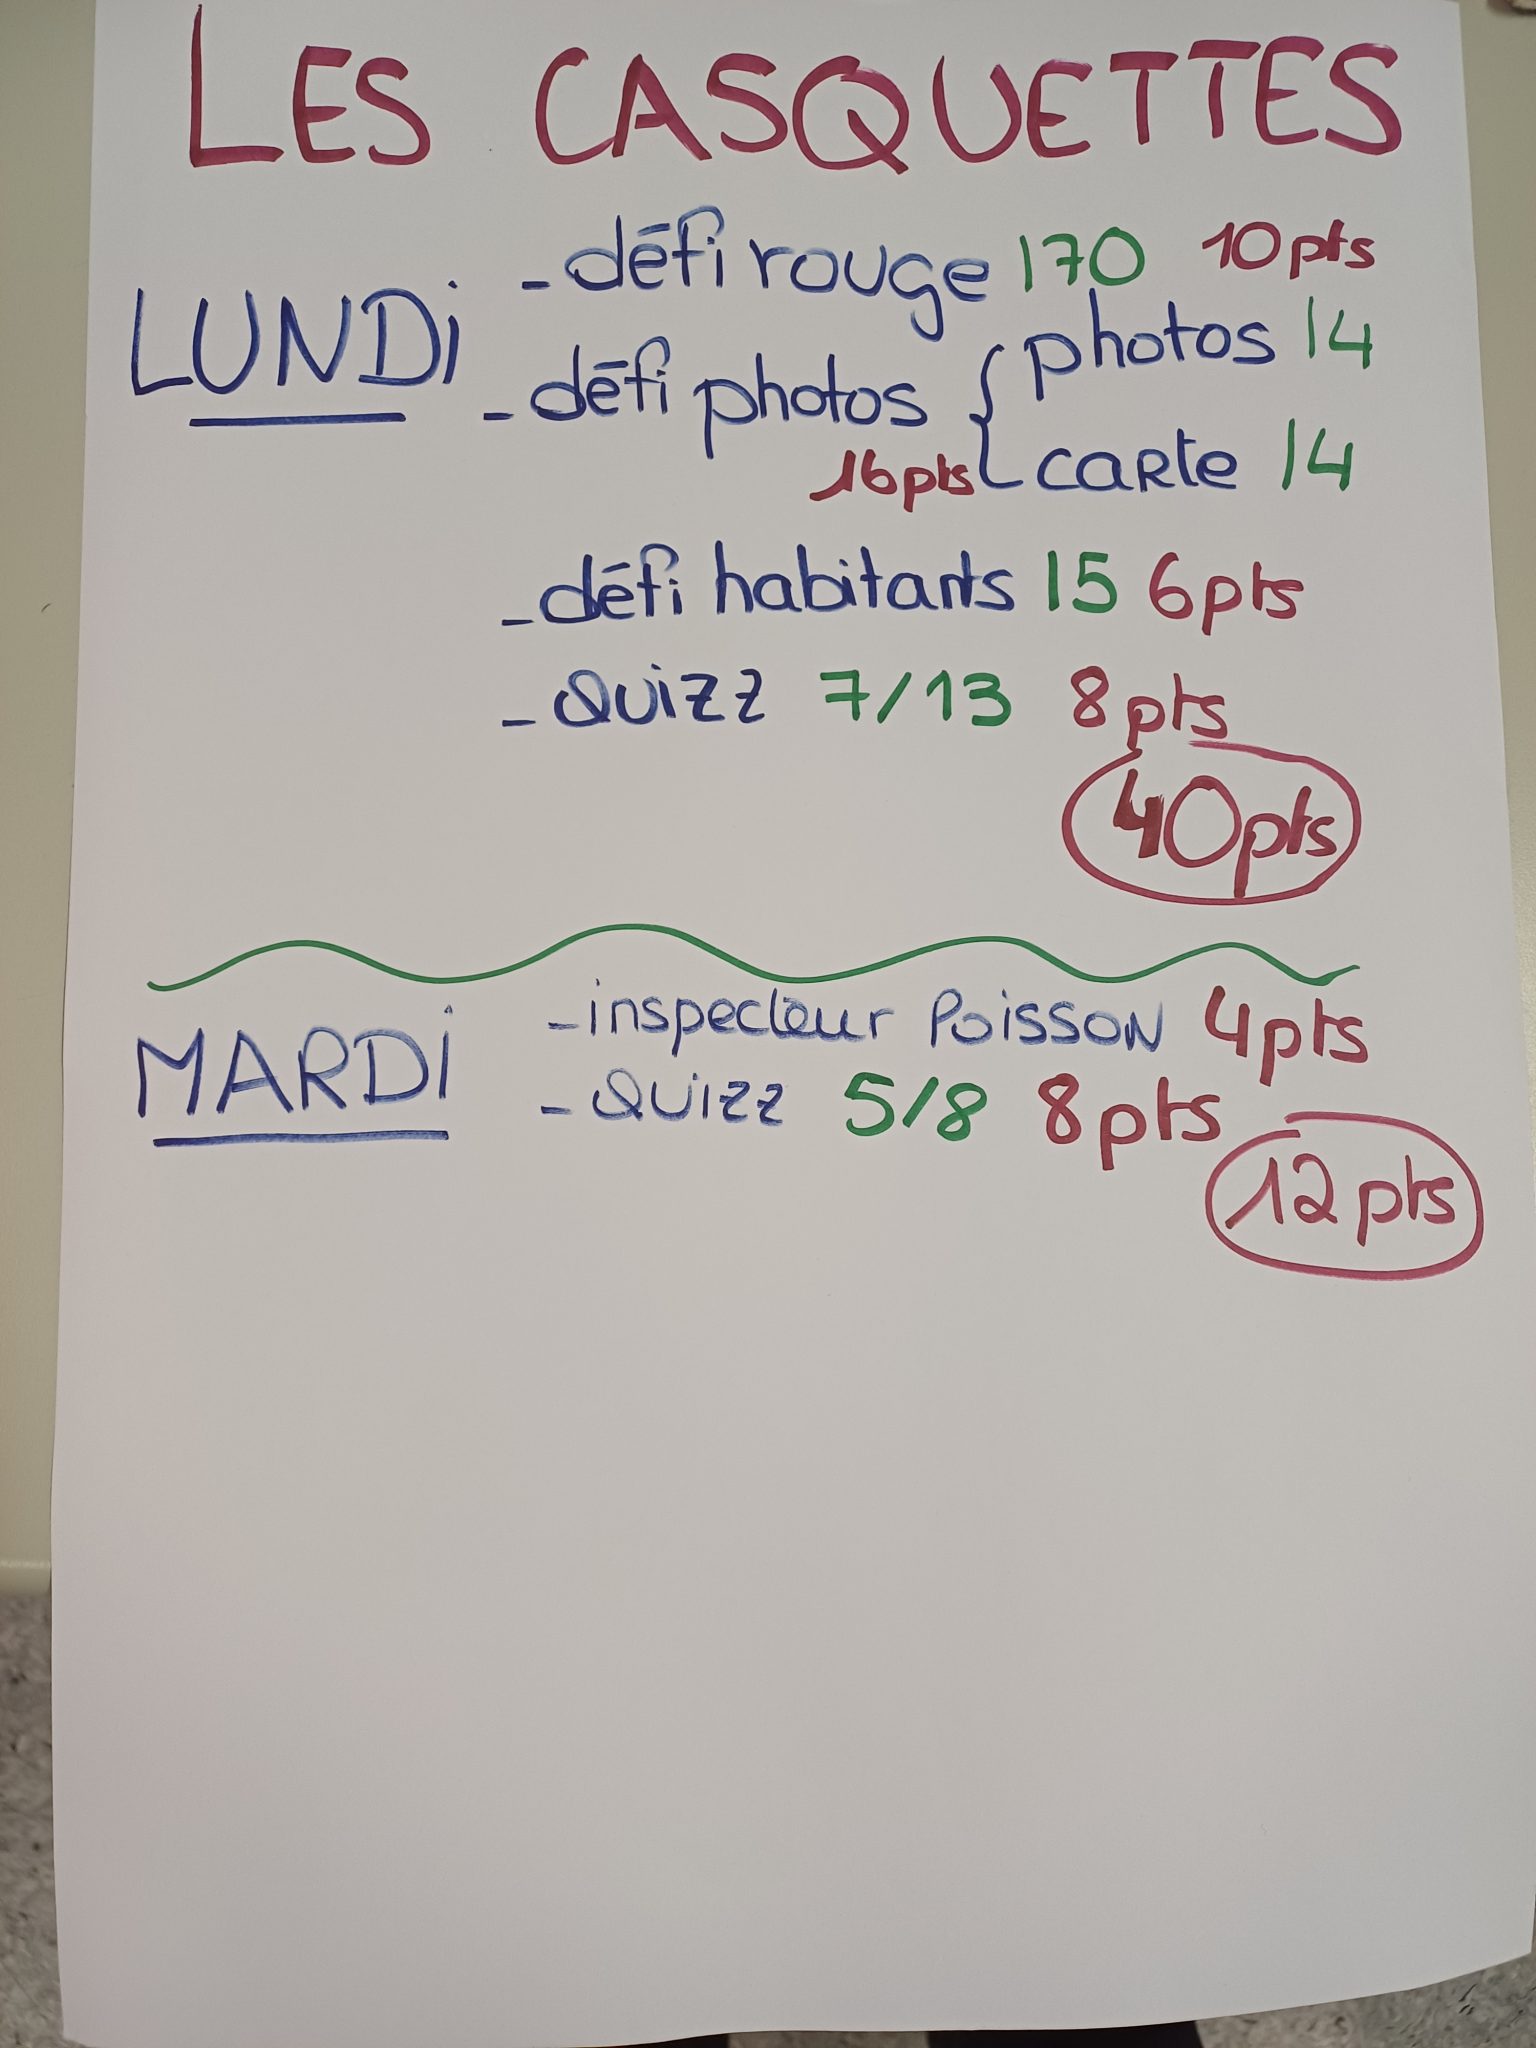 LES CASQUETTES
- défi rouge 170 10pts
LUNDi
- défi photos { photos 14
16pts carte 14
- défi habitants 15 6pts
- Quizz 7/13 8pts
40pts
MARDi
- inspecteur Poisson 4pts
- Quizz 5/8 8pts
12pts